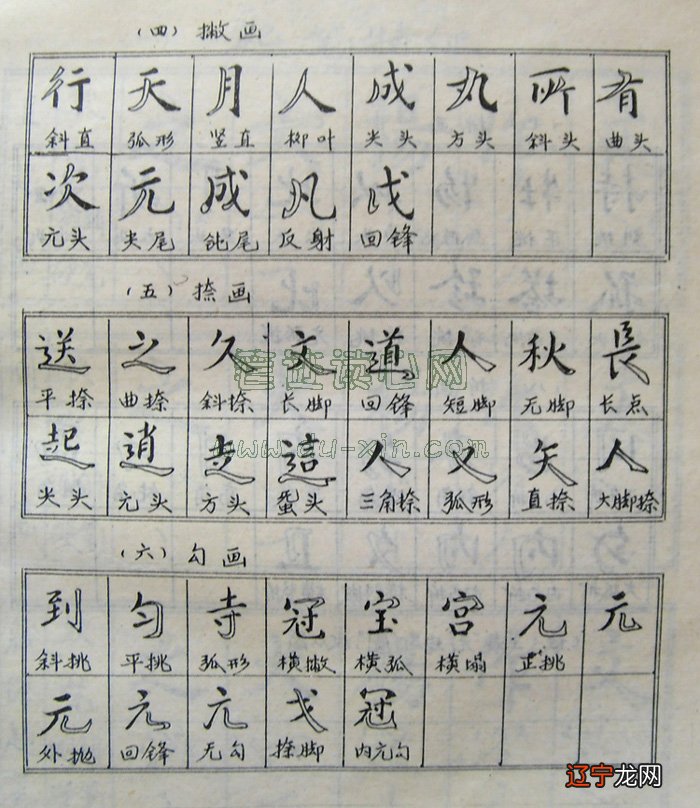 (四) 撇画
行 天 月 人 成 丸 所 有
斜直 弧形 竖直 柳叶 尖头 方头 斜头 曲头
次 元 成 凡 戊
元头 尖尾 钝尾 反射 回锋
(五) 捺画
送 之 久 文 道 人 秋 長
平捺 曲捺 斜捺 长脚 回锋 短脚 无脚 长点
起 逍 走 這 人 又 矢 人
尖头 元头 方头 蚕头 三角捺 弧形 直捺 大脚捺
(六) 勾画
到 匀 寺 冠 宝 宫 元 元
斜挑 平挑 弧形 横撇 横弧 横塌 正挑
元 元 亢 戈 冠
外抛 回锋 无勾 捺脚 内元勾
辽宁龙网